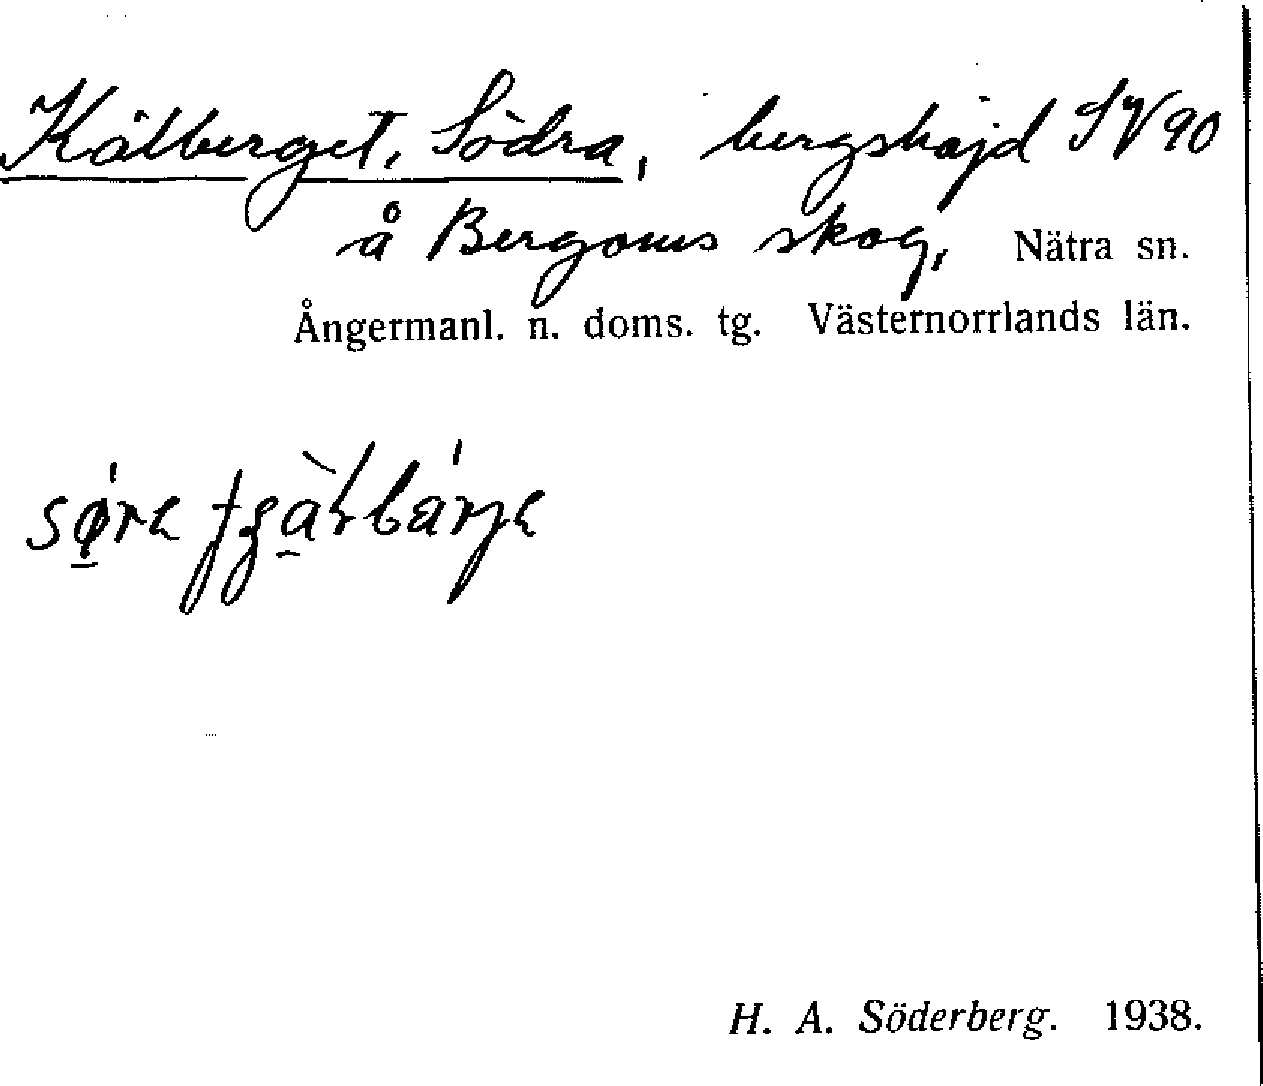 Kälberget, Södra, bergshöjd SV 90
å Bergoms skog, Nätra sn.
Ångermanl. n. doms. tg. Västernorrlands län.
H. A. Söderberg. 1938.